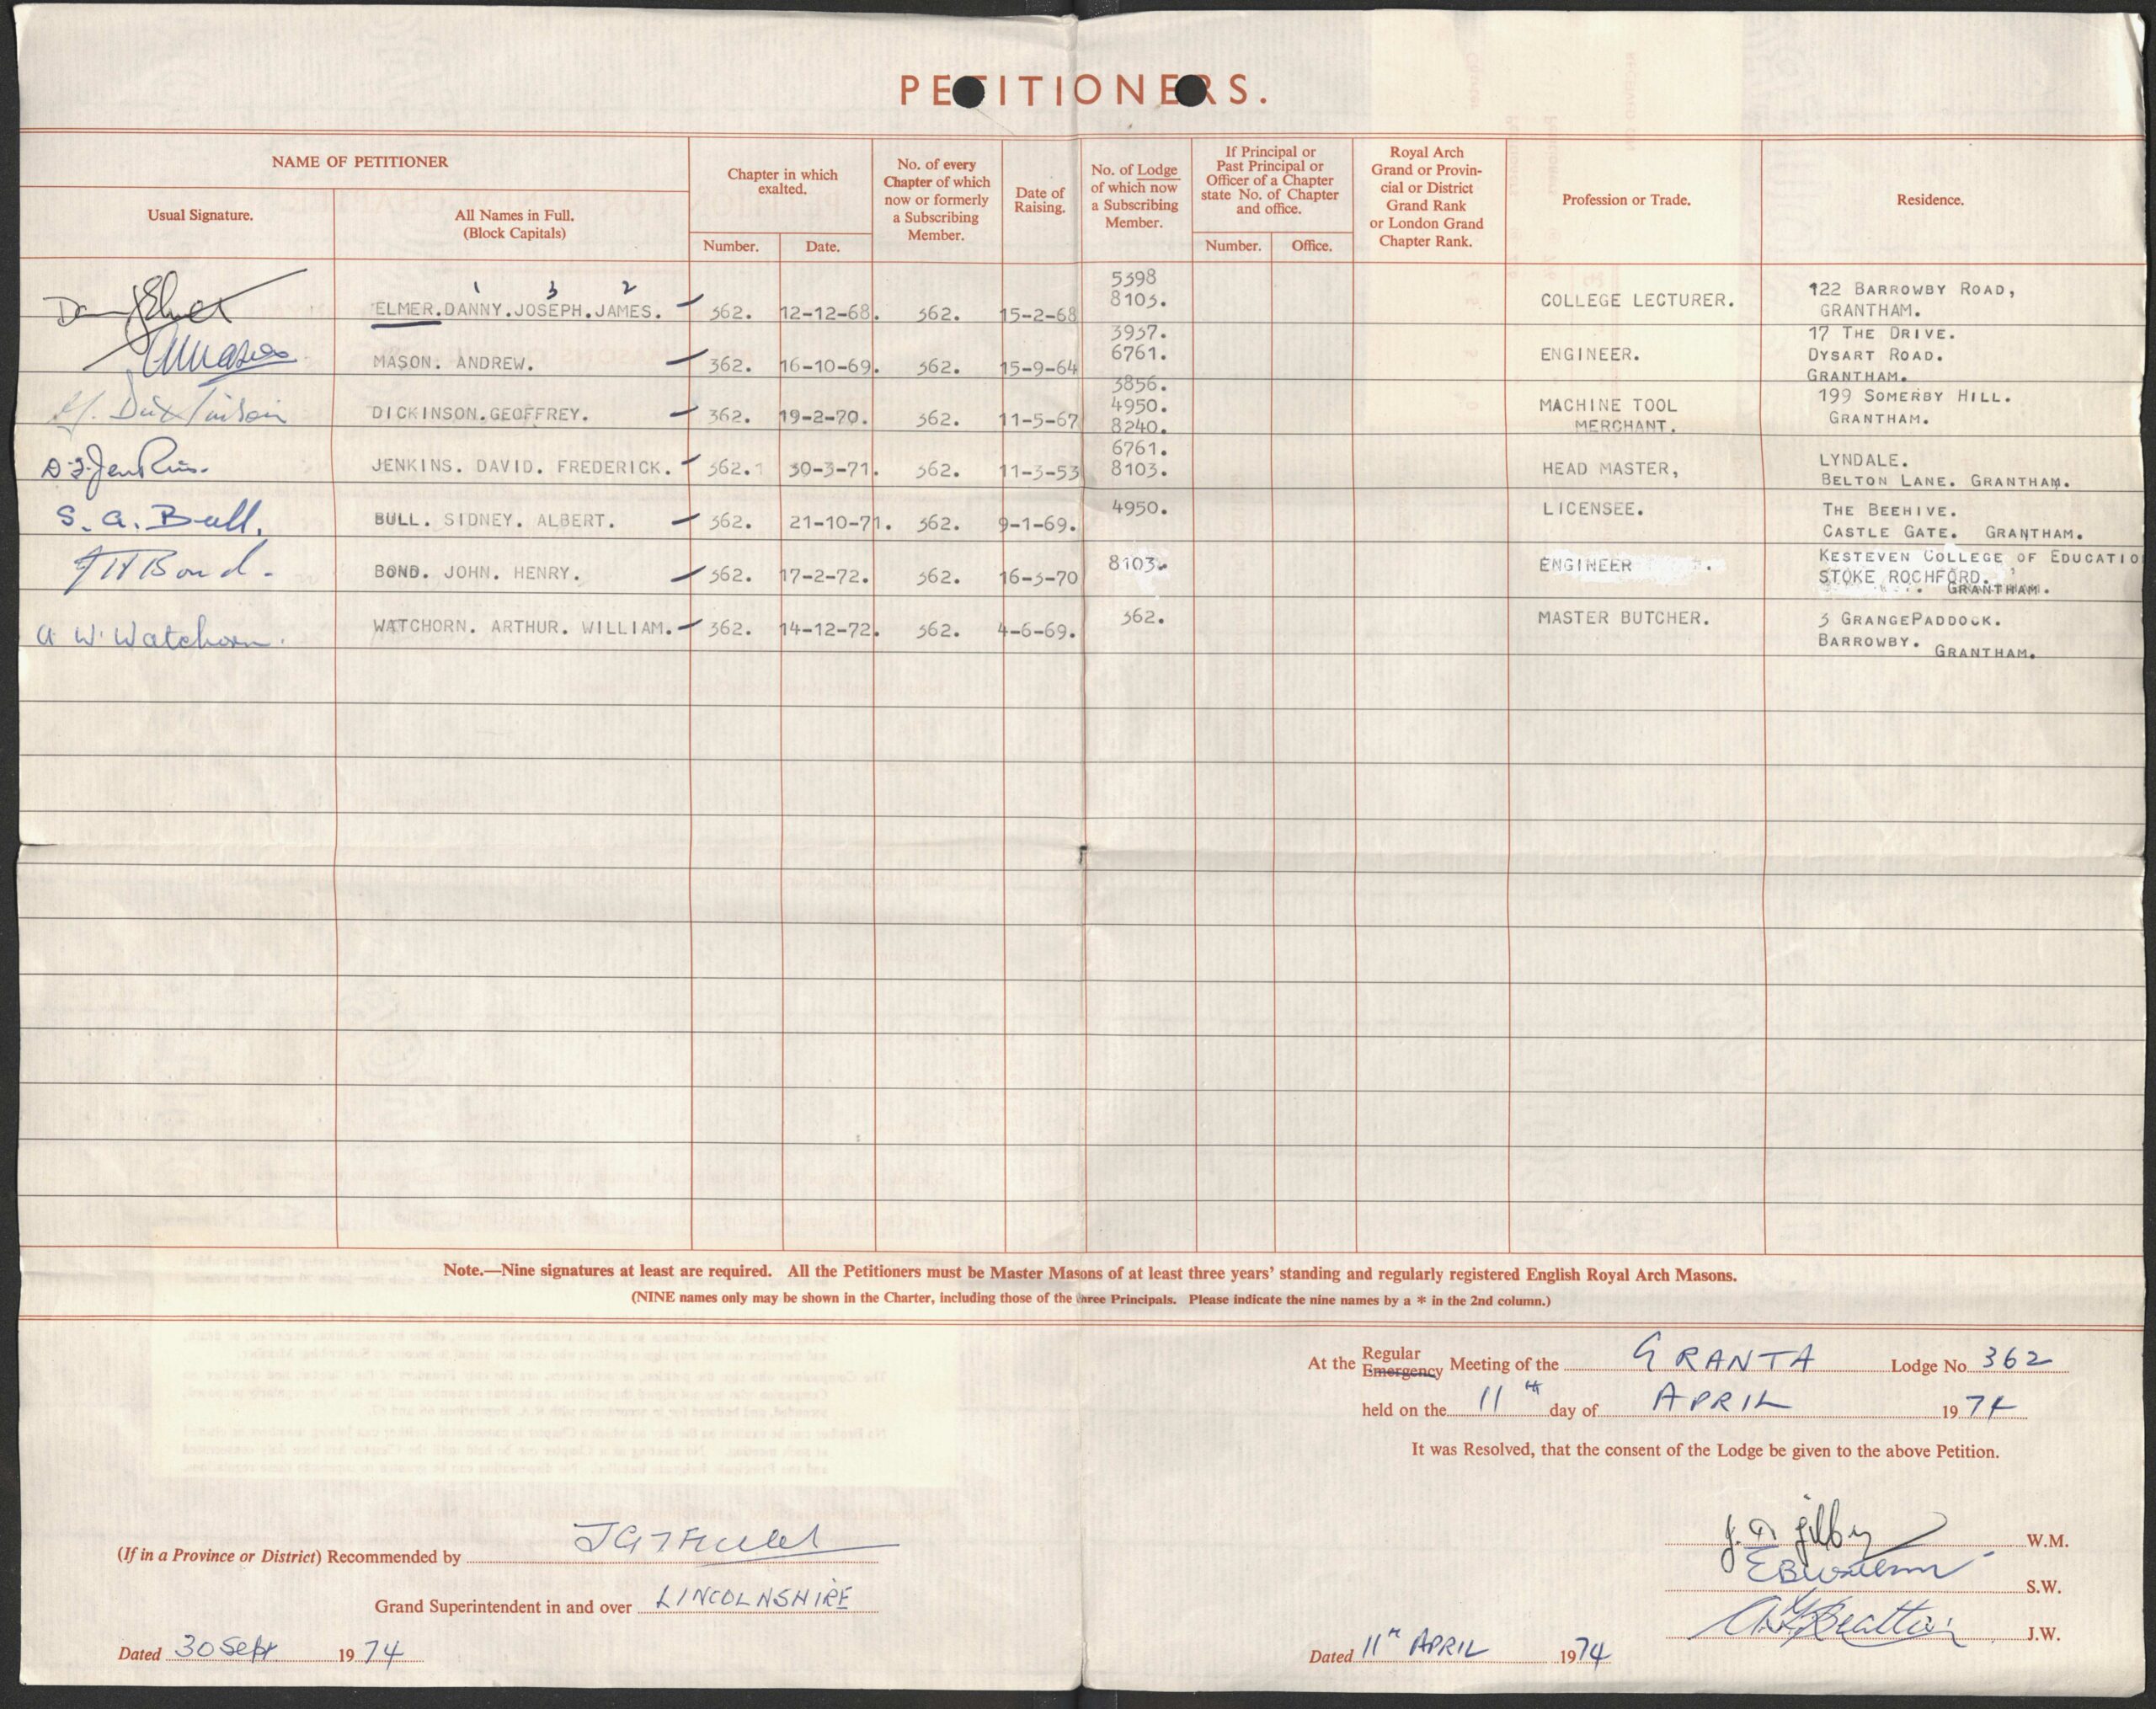 PETITIONERS.
NAME OF PETITIONER
Usual Signature.
All Names in Full.
(Block Capitals)
Chapter in which
exalted.
Number.
Date.
No. of every
Chapter of which
now or formerly
a Subscribing
Member.
Date of
Raising.
No. of Lodge
of which now
a Subscribing
Member.
If Principal or
Past Principal or
Officer of a Chapter
state No. of Chapter
and office.
Number.
Office.
Royal Arch
Grand or Provin-
cial or District
Grand Rank
or London Grand
Chapter Rank.
Profession or Trade.
Residence.
1 3 2
ELMER.DANNY.JOSEPH.JAMES. 362. 12-12-68. 362. 15-2-68
5398
8103.
COLLEGE LECTURER.
122 BARROWBY ROAD,
GRANTHAM.
MASON. ANDREW. 362. 16-10-69. 362. 15-9-64
3937.
6761.
ENGINEER.
17 THE DRIVE.
DYSART ROAD.
GRANTHAM.
G. Dickinson
DICKINSON.GEOFFREY. 362. 19-2-70. 362. 11-5-67
3856.
4950.
8240.
MACHINE TOOL
MERCHANT.
199 SOMERBY HILL.
GRANTHAM.
D.F. Jenkins.
JENKINS. DAVID. FREDERICK. 362. 30-3-71. 362. 11-3-53
6761.
8103.
HEAD MASTER,
LYNDALE.
BELTON LANE. GRANTHAM.
S. A. Bull.
BULL. SIDNEY. ALBERT. 362. 21-10-71. 362. 9-1-69.
4950.
LICENSEE.
THE BEEHIVE.
CASTLE GATE. GRANTHAM.
JH Bond.
BOND. JOHN. HENRY. 362. 17-2-72. 362. 16-3-70
8103.
ENGINEER .
KESTEVEN COLLEGE OF EDUCATIO
STOKE ROCHFORD.
GRANTHAM.
A. W. Watchorn.
WATCHORN. ARTHUR. WILLIAM. 362. 14-12-72. 362. 4-6-69.
362.
MASTER BUTCHER.
3 GRANGEPADDOCK.
BARROWBY. GRANTHAM.
Note.—Nine signatures at least are required. All the Petitioners must be Master Masons of at least three years' standing and regularly registered English Royal Arch Masons.
(NINE names only may be shown in the Charter, including those of the three Principals. Please indicate the nine names by a * in the 2nd column.)
At the Regular Emergency Meeting of the GRANTA Lodge No. 362
held on the 11th day of APRIL 1974
It was Resolved, that the consent of the Lodge be given to the above Petition.
W.M.
S.W.
J.W.
Dated 11th APRIL 1974
(If in a Province or District) Recommended by
Grand Superintendent in and over LINCOLNSHIRE
Dated 30 Sept 1974